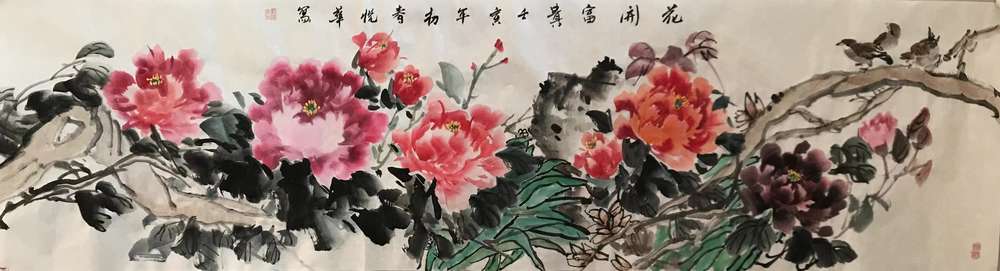 花開富貴壬寅年初春悦華寫